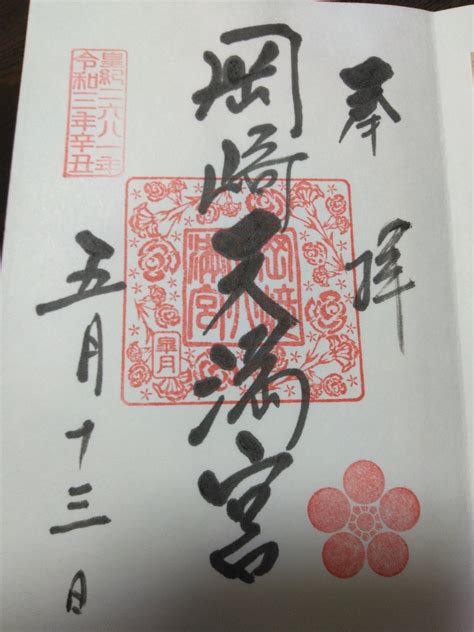 奉拝
岡崎天満宮
岡崎天満宮
皐月
皇紀二六八一年
令和三年辛丑
五月十三日